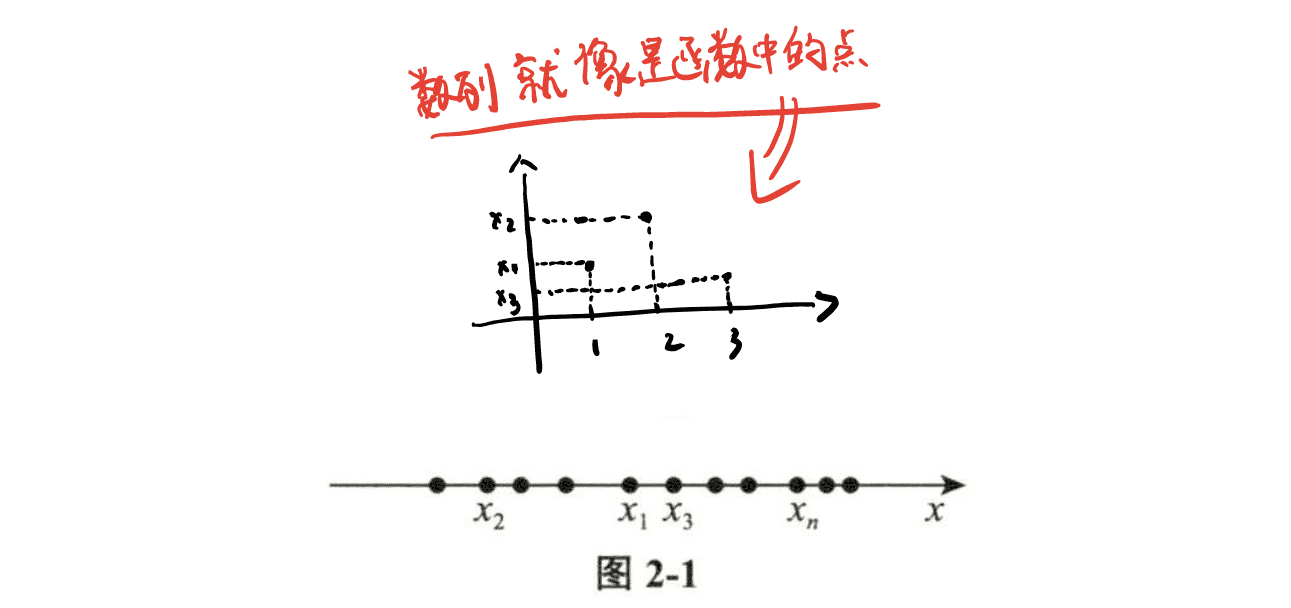 数列就像是函数中的点
x2
x1
x3
1 2 3
x2 x1 x3 xn x
图 2-1